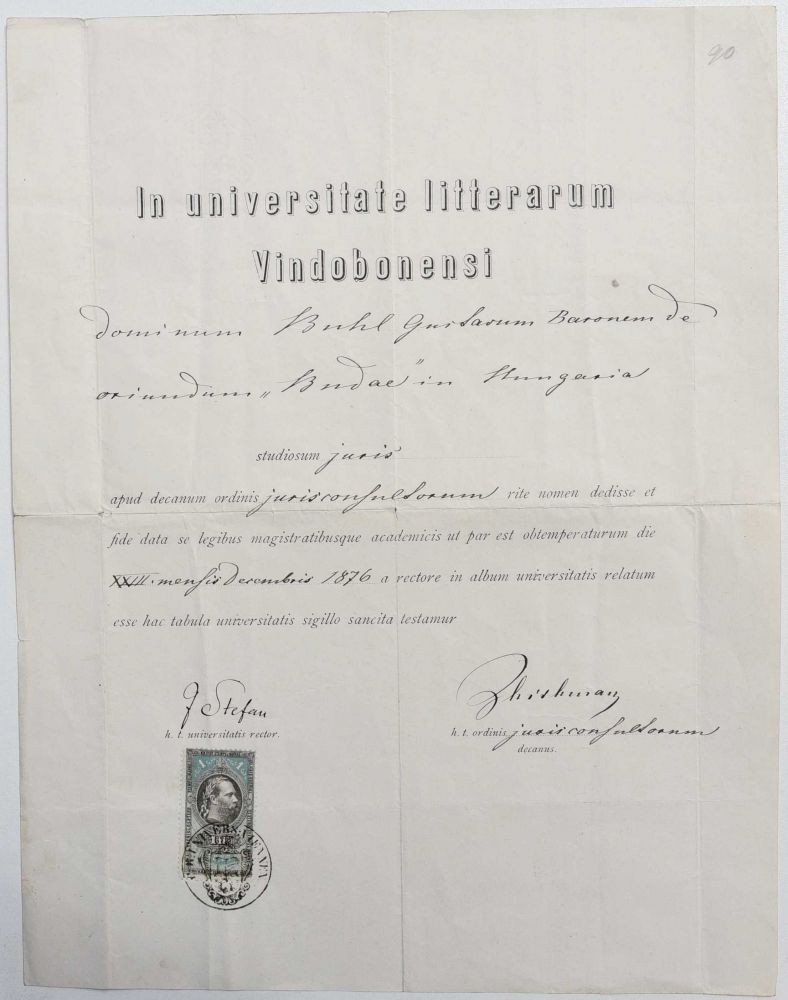 90
In universitate litterarum
Vindobonensi
dominum Buhl Gustavum Baronem de
oriundum „Budae" in Hungaria
studiosum juris
apud decanum ordinis jurisconsultorum rite nomen dedisse et
fide data se legibus magistratibusque academicis ut par est obtemperaturum die
XXIII. mensis Decembris 1876 a rectore in album universitatis relatum
esse hac tabula universitatis sigillo sancita testamur
J Stefan
h. t. universitatis rector.
Zhishman
h. t. ordinis jurisconsultorum
decanus.
1 1